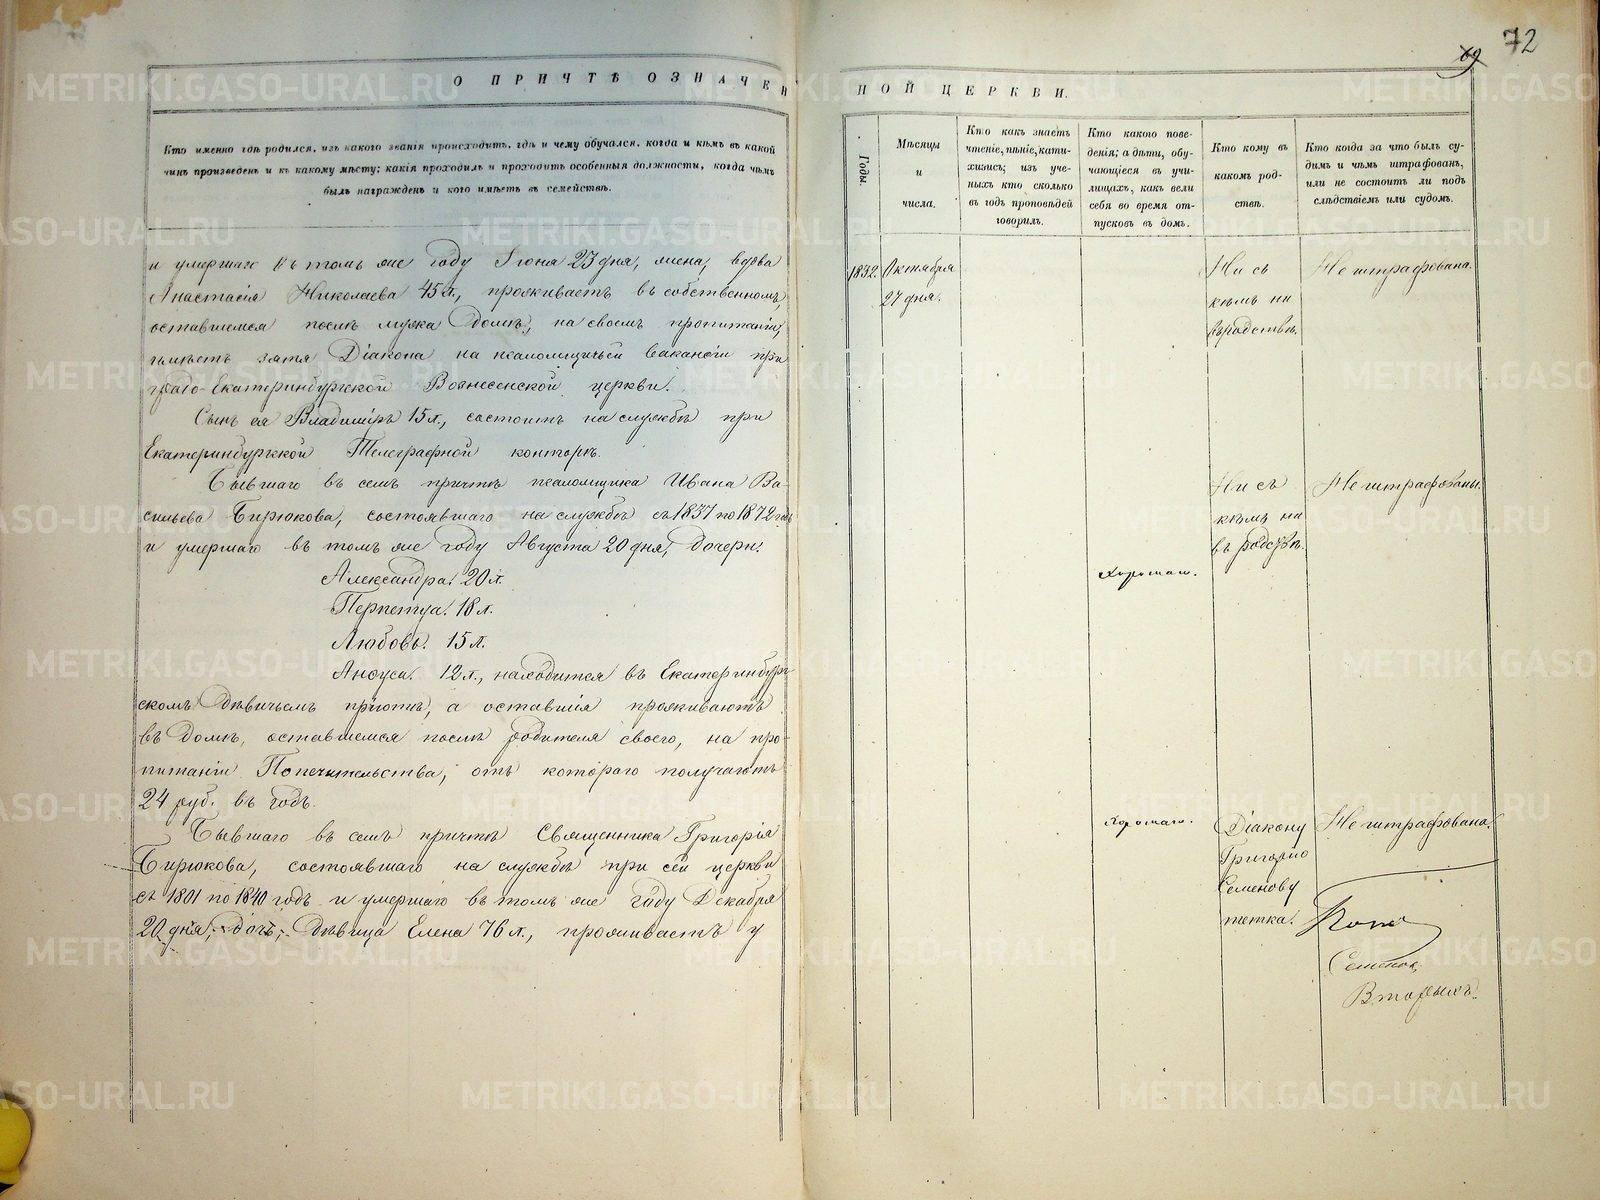 69 72
О ПРИЧТѢ ОЗНАЧЕН
НОЙ ЦЕРКВИ.
Кто именно гдѣ родился, изъ какого званія происходитъ, гдѣ и чему обучался, когда и кѣмъ въ какой
чинъ произведенъ и къ какому мѣсту; какія проходилъ и проходитъ особенныя должности, когда чѣмъ
былъ награжденъ и кого имѣетъ въ семействѣ.
и умершаго въ томъ же году Іюня 23 дня, жена, вдова
Анастасія Николаева 45 л., проживаетъ въ собственномъ,
оставшемся послѣ мужа домѣ, на своемъ пропитаніи,
имѣетъ зятя Діакона на псаломщичьей вакансіи при
градо-Екатеринбургской Вознесенской церкви.
Сынъ ея Владиміръ 15 л., состоитъ на службѣ при
Екатеринбургской Телеграфной конторѣ.
Бывшаго въ семъ причтѣ псаломщика Ивана Ва-
сильева Бирюкова, состоявшаго на службѣ съ 1837 по 1872 годъ
и умершаго въ томъ же году Августа 20 дня, дочери:
Александра. 20 л.
Перпетуа. 18 л.
Любовь. 15 л.
Анфуса. 12 л., находится въ Екатеринбург-
скомъ Дѣвичьемъ пріютѣ, а оставшія проживаютъ
въ домѣ, оставшемся послѣ родителя своего, на про-
питаніи Попечительства, отъ котораго получаютъ
24 руб. въ годъ.
Бывшаго въ семъ причтѣ Священника Григорія
Бирюкова, состоявшаго на службѣ при сей церкви
съ 1801 по 1840 годъ и умершаго въ томъ же году Декабря
20 дня, дочь, дѣвица Елена 76 л., проживаетъ у
Годы.
Мѣсяцы
и
числа.
Кто какъ знаетъ
чтеніе, пѣніе, кати-
хизисъ; изъ уче-
ныхъ кто сколько
въ годъ проповѣдей
говорилъ.
Кто какого пове-
денія; а дѣти, обу-
чающіеся въ учи-
лищахъ, какъ вели
себя во время от-
пусковъ въ домъ.
Кто кому въ
какомъ род-
ствѣ.
Кто когда за что былъ су-
димъ и чѣмъ штрафованъ,
или не состоитъ ли подъ
слѣдствіемъ или судомъ.
1832. Октября
27 дня.
Ни съ
кѣмъ не
въ родствѣ.
Не штрафована.
Ни съ
кѣмъ не
въ родствѣ.
Не штрафованы.
Хорошаго.
Хорошаго.
Діакону
Григорію
Семенову
тетка.
Не штрафована.
Семенов.
Вторыхъ.
METRIKI.GASO-URAL.RU